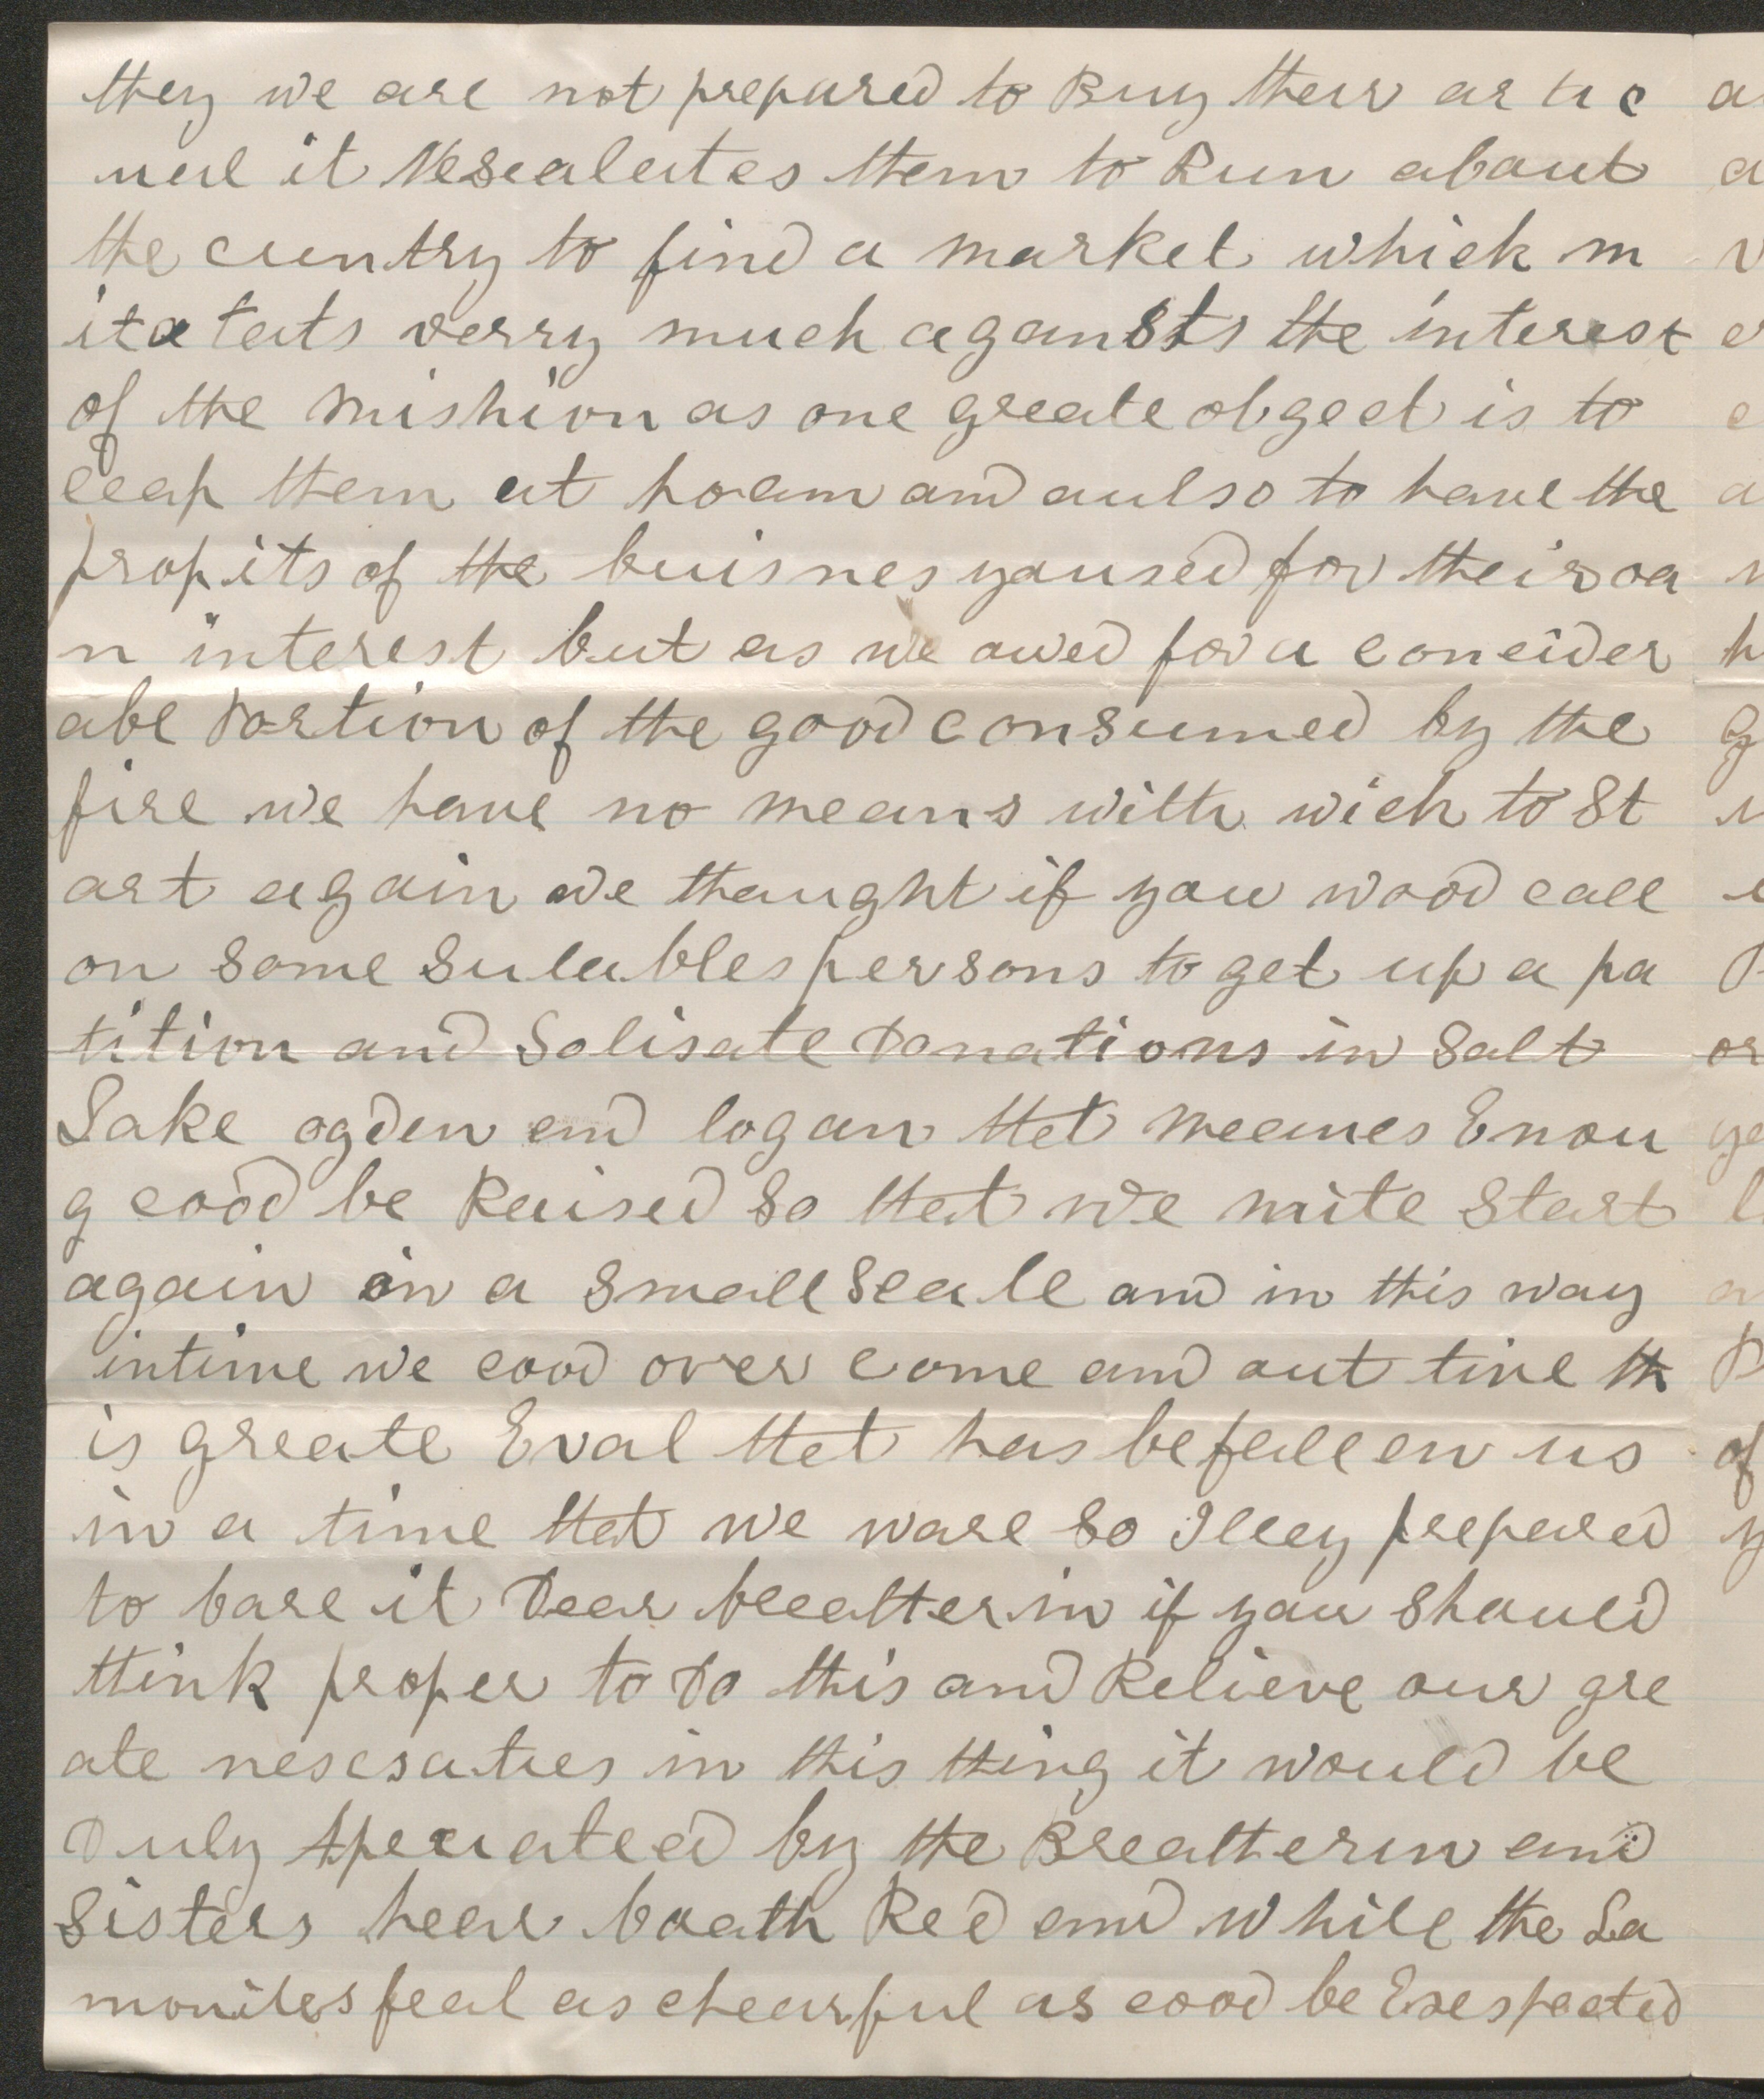 they we are not prepared to Buy their ar tic
uel it Neseatates them to Run about
the cuntry to find a market which m
ita tats verry much agansts the interest
of the mishion as one greate obgect is to
ceap them at hoam and aulso to have the
propits of the buisnes yaused for their oa
n interest but as we awed for a coneider
abl Portion of the good consumed by the
fire we have no means with wich to St
art again we thaught if you wood call
on some Sutables persons to get up a pa
tition and Solisate Donations in Salt
Lake ogden and logan that meanes Enou
g cood be Raised So that we mite Start
again on a Small Scale and in this way
intime we cood over come and out live th
is greate Eval that has befallen us
in a time that we ware So Illey prepared
to bare it Dear breatherin if you Should
think proper to Do this and Relieve our gre
ate nescsaties in this thing it would be
Duly Apreciateed by the Breatherin and
Sisters hear boath Red and White the La
monites feal as chearful as cood be Exespected